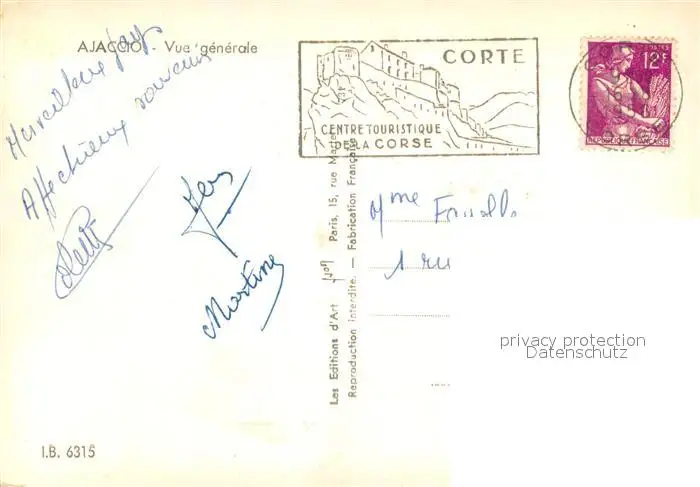 AJACCIO - Vue générale
Merveilleux pays
Affectueux souvenir
Martine
I.B. 6315
CORTE
CENTRE TOURISTIQUE
DE LA CORSE
POSTES
12F
REPUBLIQUE FRANÇAISE
Les Editions d'Art Yvon Paris, 15, rue Martel
Reproduction interdite. - Fabrication Française
Mme
1 rue
privacy protection
Datenschutz